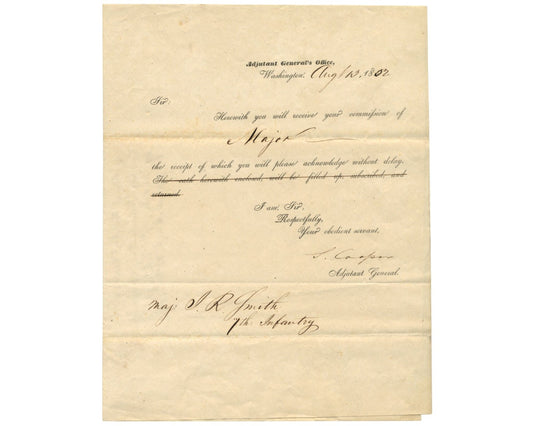 Adjutant General's Office,
Washington, Augt 13, 1852
Sir:
Herewith you will receive your commission of
Major
the receipt of which you will please acknowledge without delay.
The oath herewith enclosed, will be filled up, subscribed, and
returned.
I am, Sir,
Respectfully,
Your obedient servant,
S. Cooper
Adjutant General.
Maj: J. R. Smith
7th Infantry